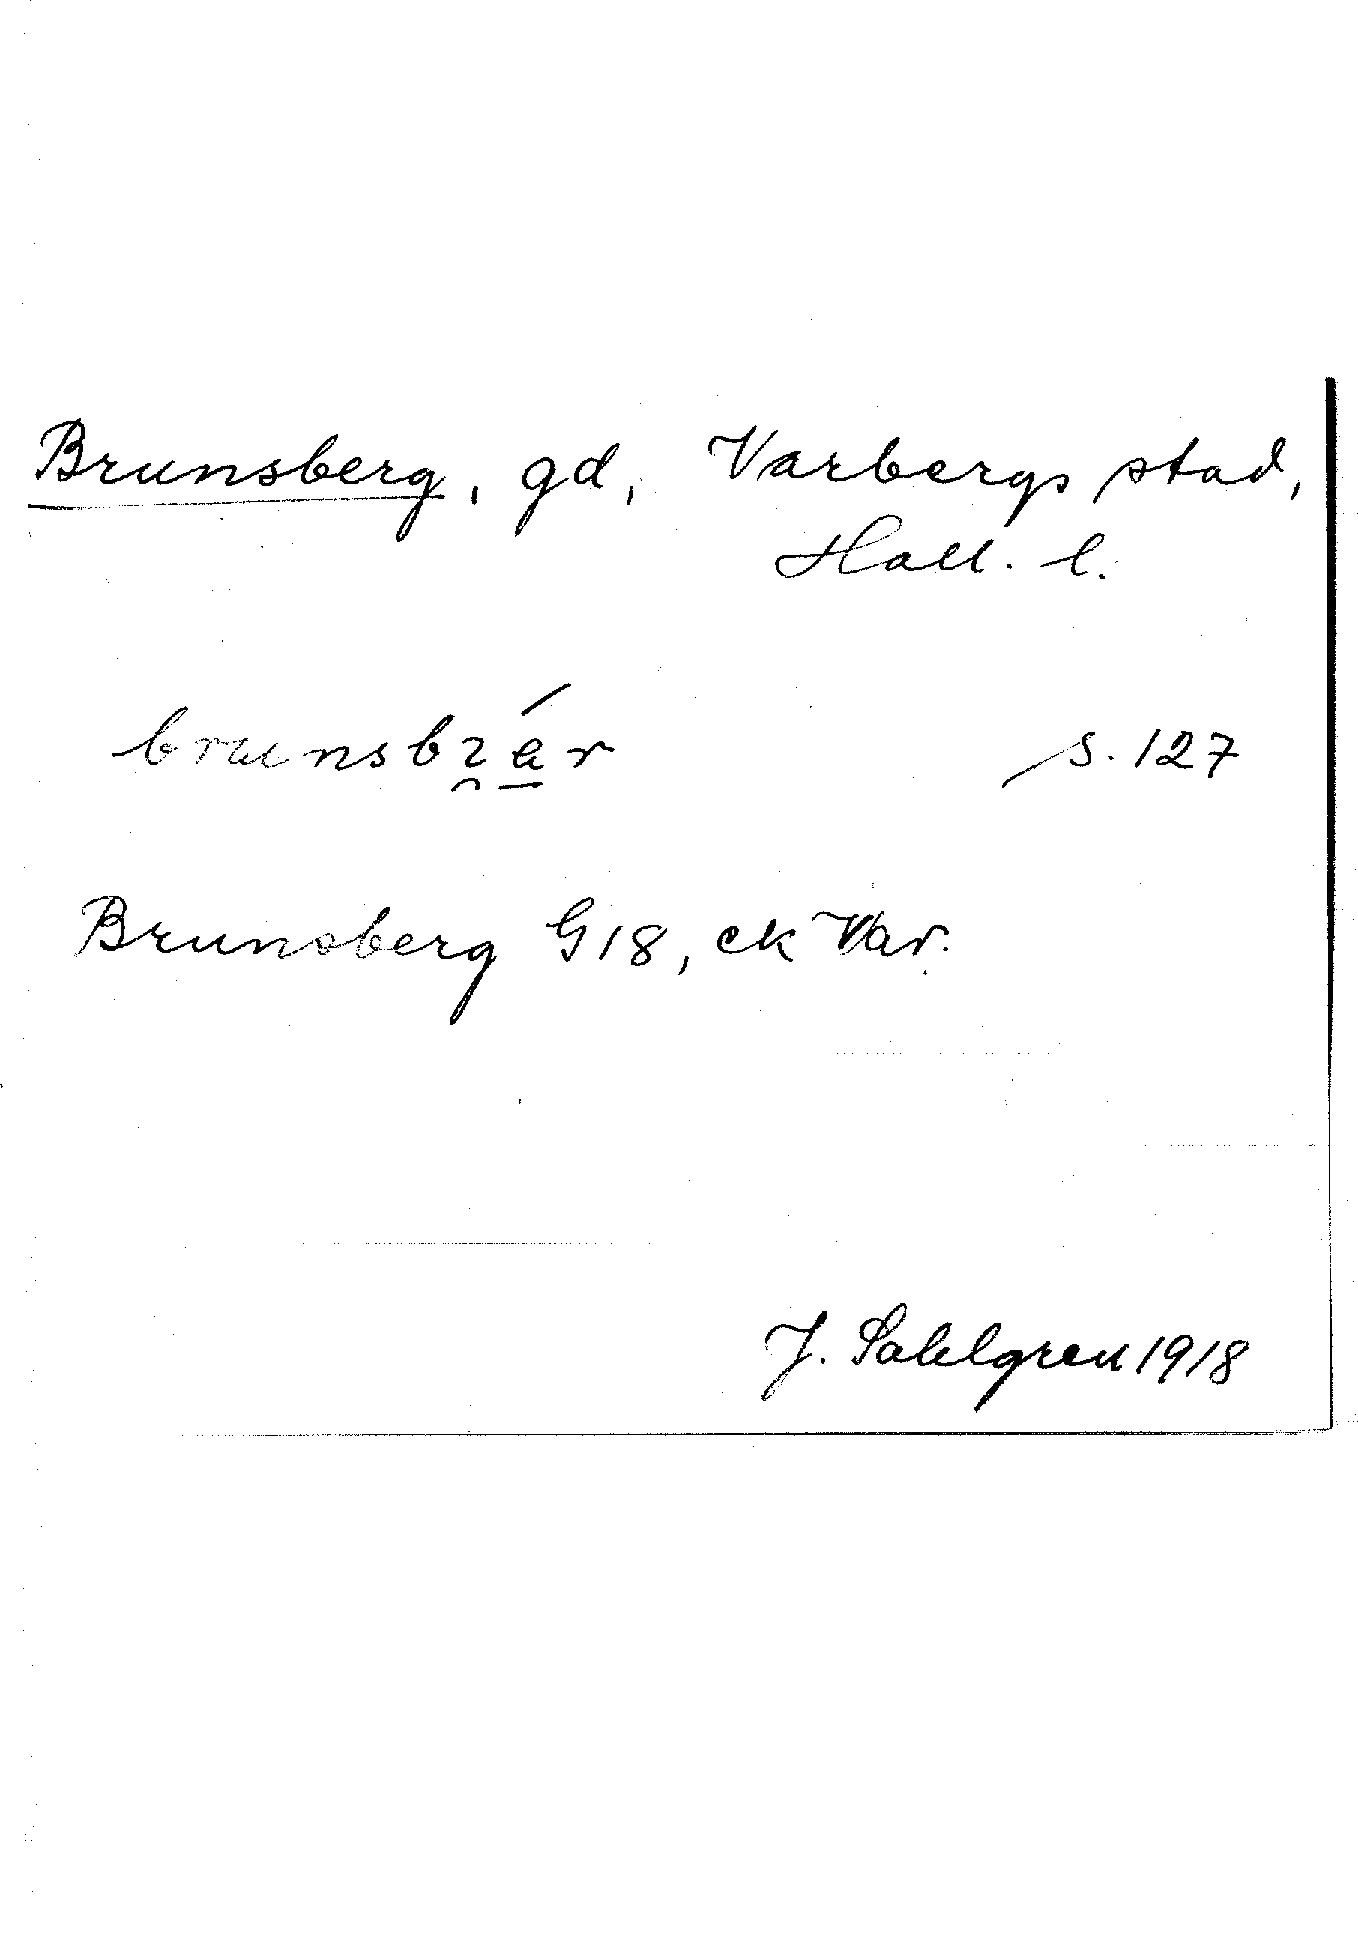 Brunsberg, gd, Varbergs stad,
Hall. l.
s. 127
Brunsberg G18, ek Var.
J. Sahlgren 1918